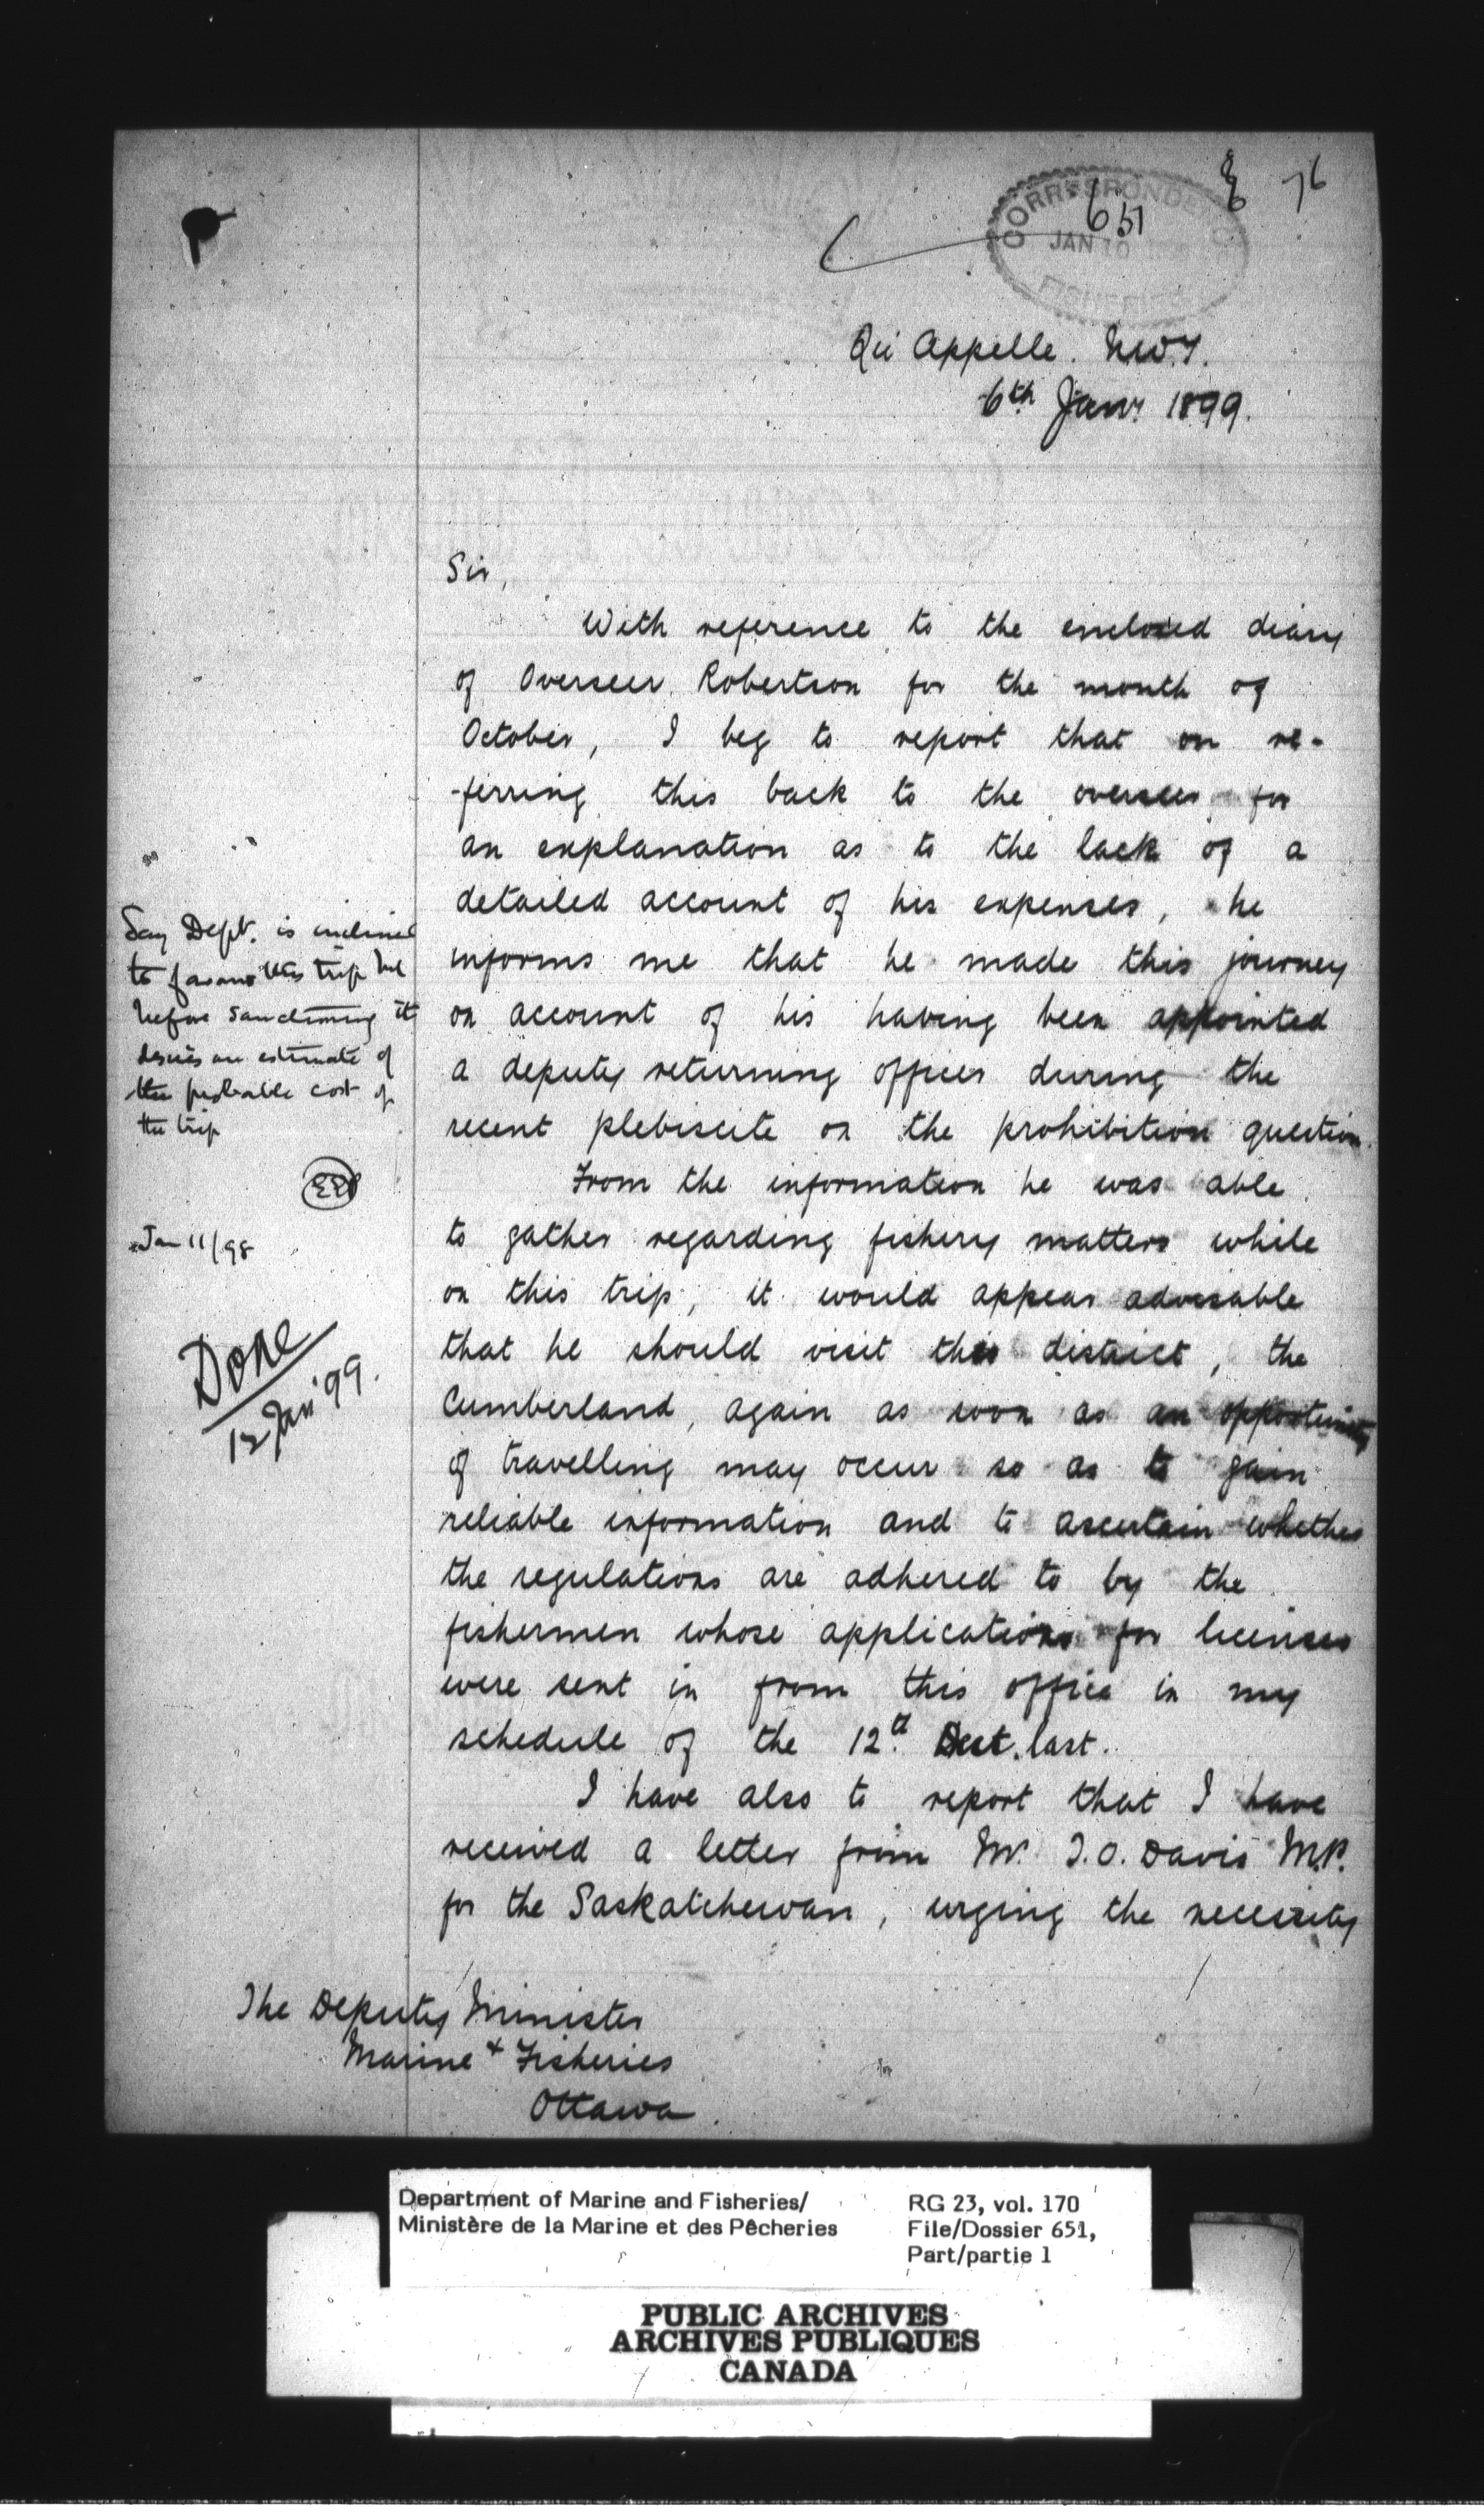 76
651
CORRESPONDENCE
JAN 10
FISHERIES
Qu Appelle. N.W.T.
6th Jany. 1899.
Sir,
With reference to the enclosed diary
of Overseer Robertson for the month of
October, I beg to report that on re-
-ferring this back to the overseer for
an explanation as to the lack of a
detailed account of his expenses, he
informs me that he made this journey
on account of his having been appointed
a deputy returning officer during the
recent plebiscite on the prohibition question.
From the information he was able
to gather regarding fishery matters while
on this trip, it would appear advisable
that he should visit this district, the
Cumberland, again as soon as an opportunity
of travelling may occur so as to gain
reliable information and to ascertain whether
the regulations are adhered to by the
fishermen whose applications for licenses
were sent in from this office in my
schedule of the 12th last.
I have also to report that I have
received a letter from Mr. T.O. Davis M.P.
for the Saskatchewan, urging the necessity
The Deputy Minister
Marine & Fisheries
Ottawa.
Say Dept. is inclined
to favour this trip but
before sanctioning it
desires an estimate of
the probable cost of
the trip
Jan 11/98
Done
12 Jan '99.
Department of Marine and Fisheries/
Ministère de la Marine et des Pêcheries
RG 23, vol. 170
File/Dossier 651,
Part/partie 1
PUBLIC ARCHIVES
ARCHIVES PUBLIQUES
CANADA